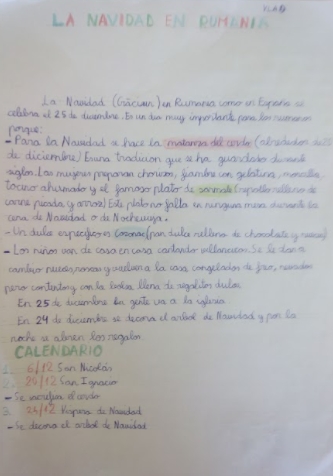 LA NAVIDAD EN RUMANIA
La Navidad (Crăciun) en Rumania como en España se
celebra el 25 de diciembre. Es un dia muy importante para los rumanos
porque:
- Para la Navidad se hace la matanza del cerdo (alrededor del 20
de diciembre) Es una tradicion que se ha guardado durante
siglos. Las mujeres preparan chorizo, fiambre con gelatina, morcilla,
tocino ahumado y el famoso plato de sarmale (repollo relleno de
carne picada y arroz) Este plato no falta en ninguna mesa durante la
cena de Navidad o de Nochevieja.
- Un dulce especifico es cozonac (pan dulce relleno de chocolate y nueces)
- Los niños van de casa en casa cantando villancicos. Se le dan a
cambio nueces, roscas y vuelven a la casa congelados de frio,
pero contentos y con la bolsa llena de regalitos dulces.
En 25 de diciembre la gente va a la iglesia
En 24 de diciembre se decora el arbol de Navidad y por la
noche se abren los regalos
CALENDARIO
1. 6/12 San Nicolás
2. 20/12 San Ignacio
- Se sacrifica el cerdo
3. 24/12 Vispera de Navidad
- Se decora el arbol de Navidad